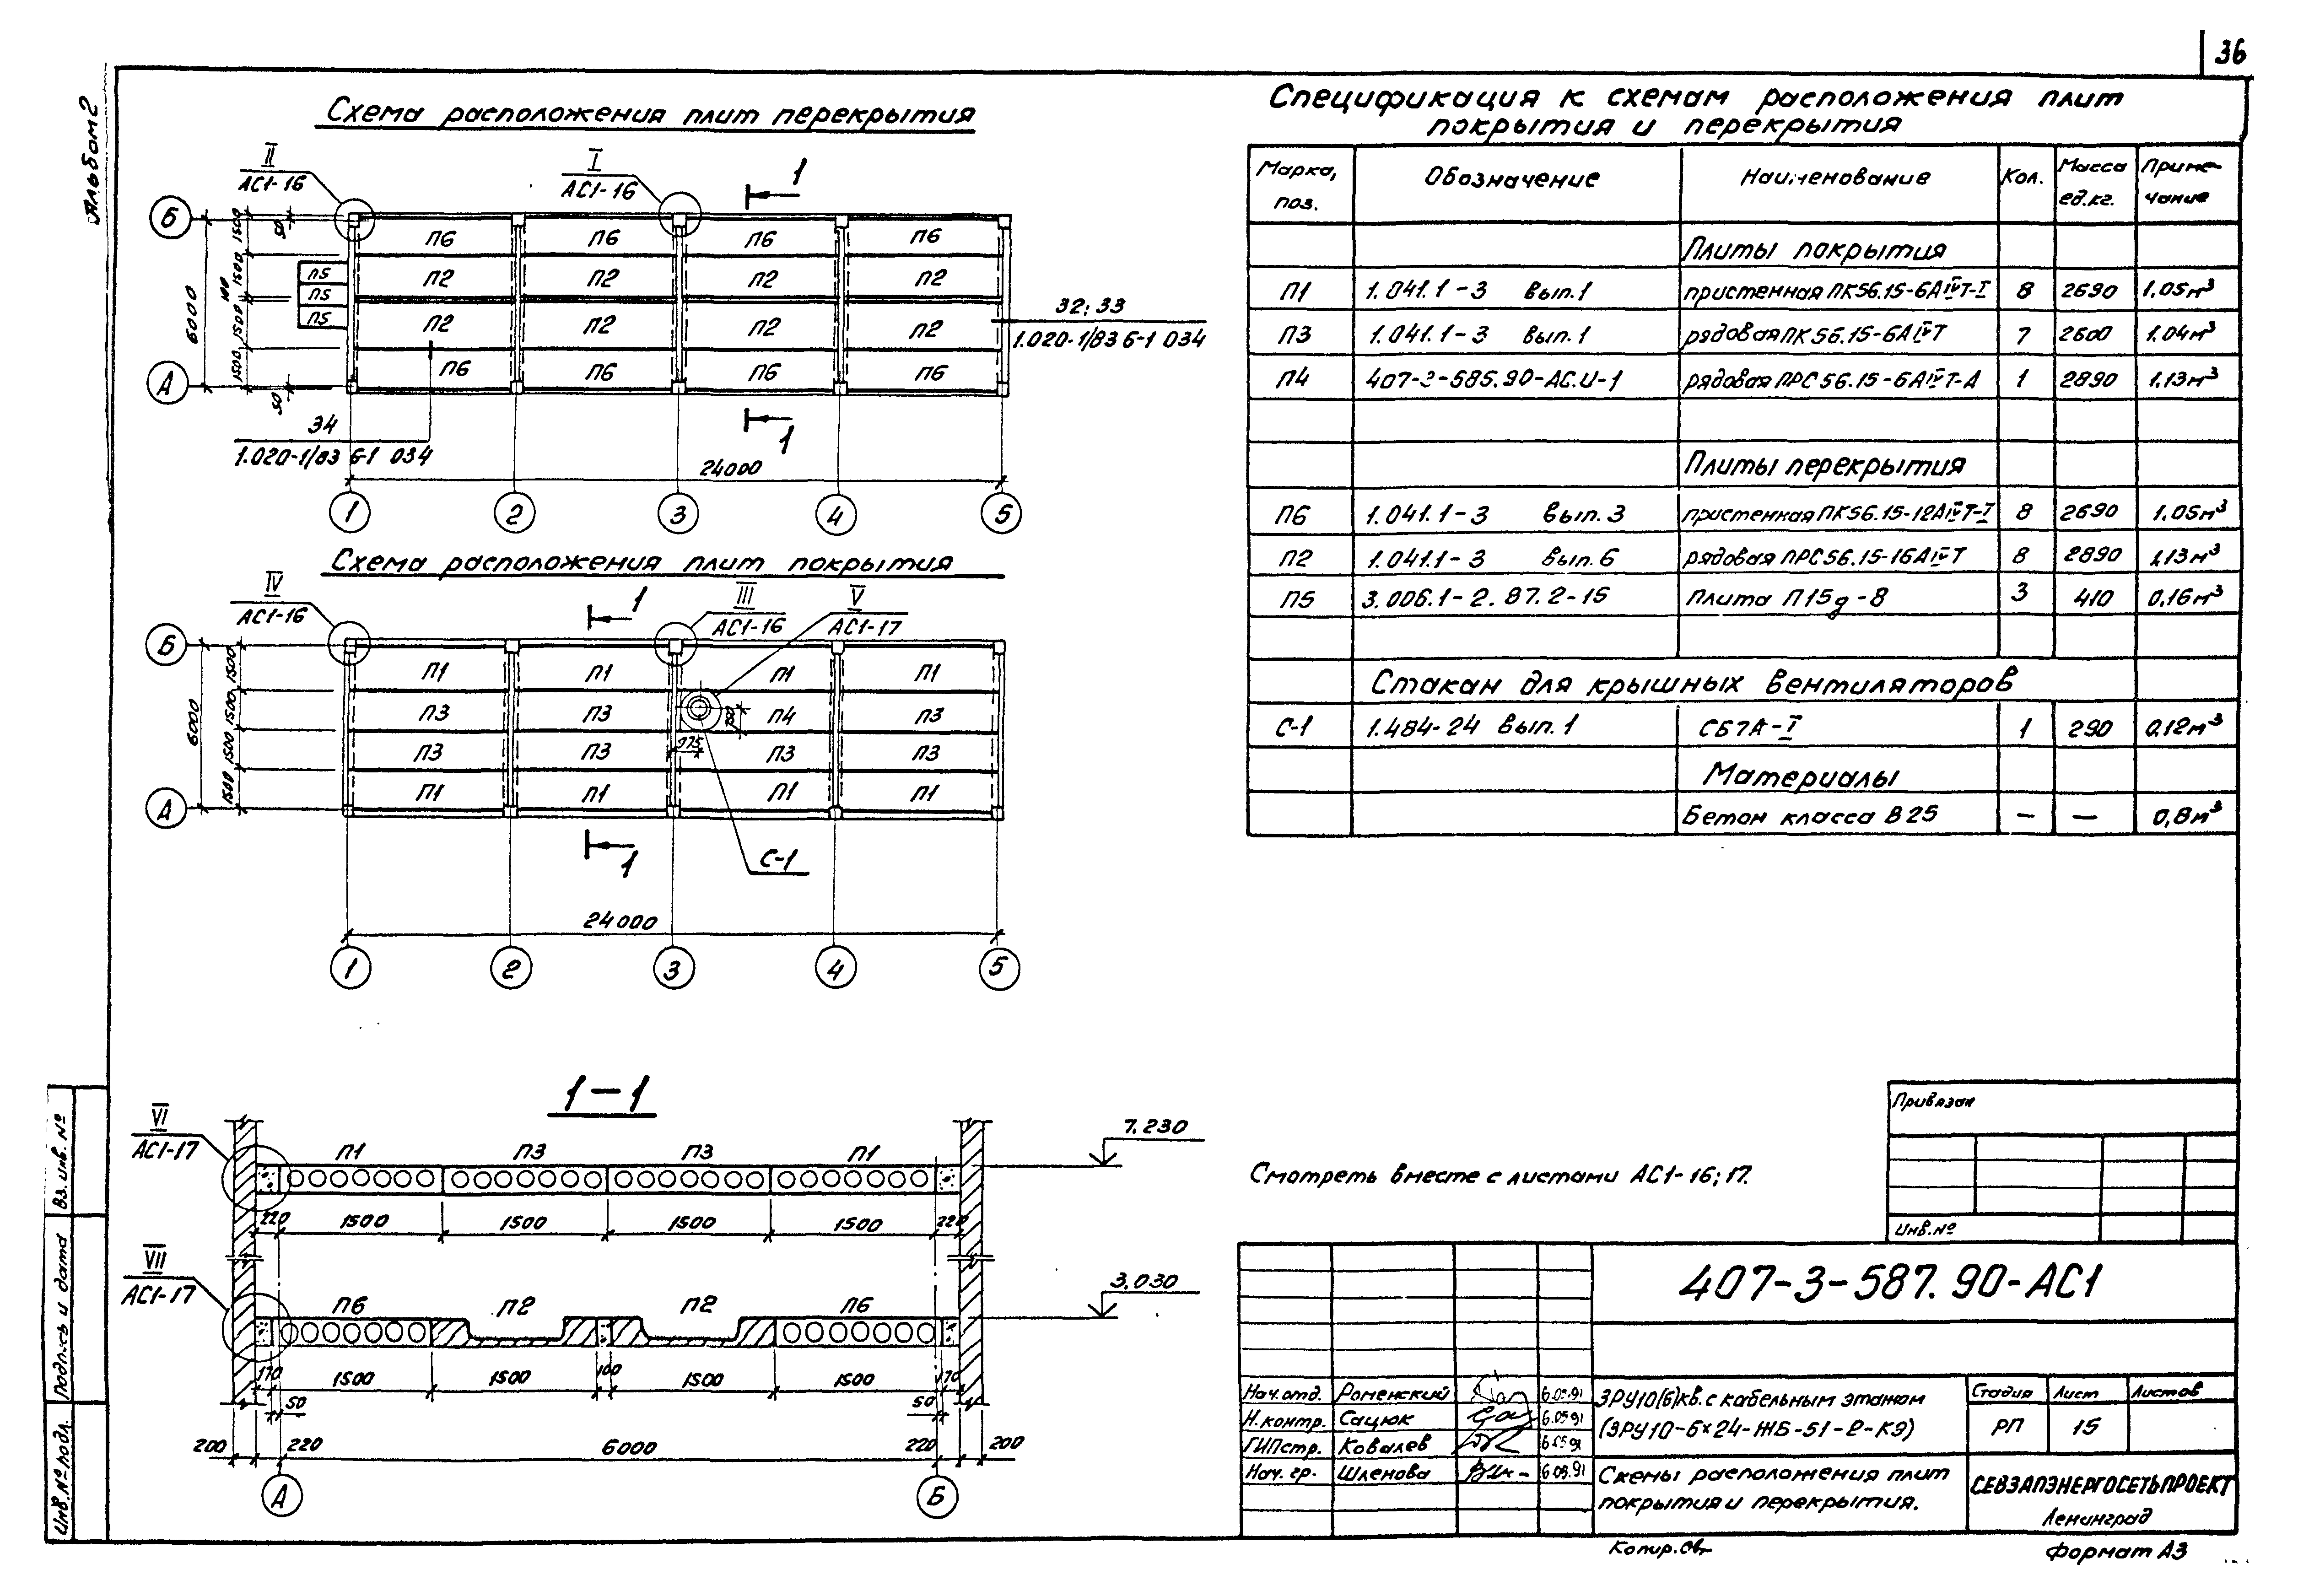 36
Альбом 2
Схема расположения плит перекрытия
II
АС1-16
I
АС1-16
1
Б
50
1500
П6 П6 П6 П6
П5
1500
П2 П2 П2 П2
П5
100
6000
П5
1500
П2 П2 П2 П2
32; 33
1.020-1/83 6-1 034
1500
П6 П6 П6 П6
А
50
34
1.020-1/83 6-1 034
1
24000
1 2 3 4 5
Схема расположения плит покрытия
IV
АС1-16
1
III
АС1-16
V
АС1-17
Б
1500
П1 П1 П1 П1
1500
П3 П3 П4 П3
6000
1500
975
П3 П3 П3 П3
1500
П1 П1 П1 П1
А
1
С-1
24000
1 2 3 4 5
1-1
VI
АС1-17
П1 П3 П3 П1
7.230
220 1500 1500 1500 1500 220
VII
АС1-17
П6 П2 П2 П6
3.030
170 1500 1500 100 1500 1500 170
50 50
200 220 6000 220 200
А Б
Спецификация к схемам расположения плит
покрытия и перекрытия
Марка, поз. Обозначение Наименование Кол. Масса ед.кг. Приме-чание
Плиты покрытия
П1 1.041.1-3 вып.1 пристенная ПК56.15-6АIVТ-I 8 2690 1.05м³
П3 1.041.1-3 вып.1 рядовая ПК56.15-6АIVТ 7 2600 1.04м³
П4 407-3-585.90-АС.И-1 рядовая ПРС56.15-6АIVТ-А 1 2890 1.13м³
Плиты перекрытия
П6 1.041.1-3 вып.3 пристенная ПК56.15-12АIVТ-I 8 2690 1.05м³
П2 1.041.1-3 вып.6 рядовая ПРС56.15-16АIVТ 8 2890 1,13м³
П5 3.006.1-2.87.2-15 плита П15д-8 3 410 0,16м³
Стакан для крышных вентиляторов
С-1 1.484-24 вып.1 СБ7А-I 1 290 0.12м³
Материалы
Бетон класса В25 — — 0,8м³
Смотреть вместе с листами АС1-16; 17.
Привязан
Инв.№
407-3-587.90-АС1
Нач.отд. Роменский 6.05.91
Н.контр. Сацюк 6.05.91
ГИПстр. Ковалев 6.05.91
Нач. гр. Шленова 6.05.91
ЗРУ10(6)кв. с кабельным этажом
(ЗРУ10-6х24-ЖБ-51-2-КЭ)
Стадия Лист Листов
РП 15
Схемы расположения плит
покрытия и перекрытия.
СЕВЗАПЭНЕРГОСЕТЬПРОЕКТ
Ленинград
Копир.
Формат А3
Вз. инв. №
Подпись и дата
Инв.№ подл.